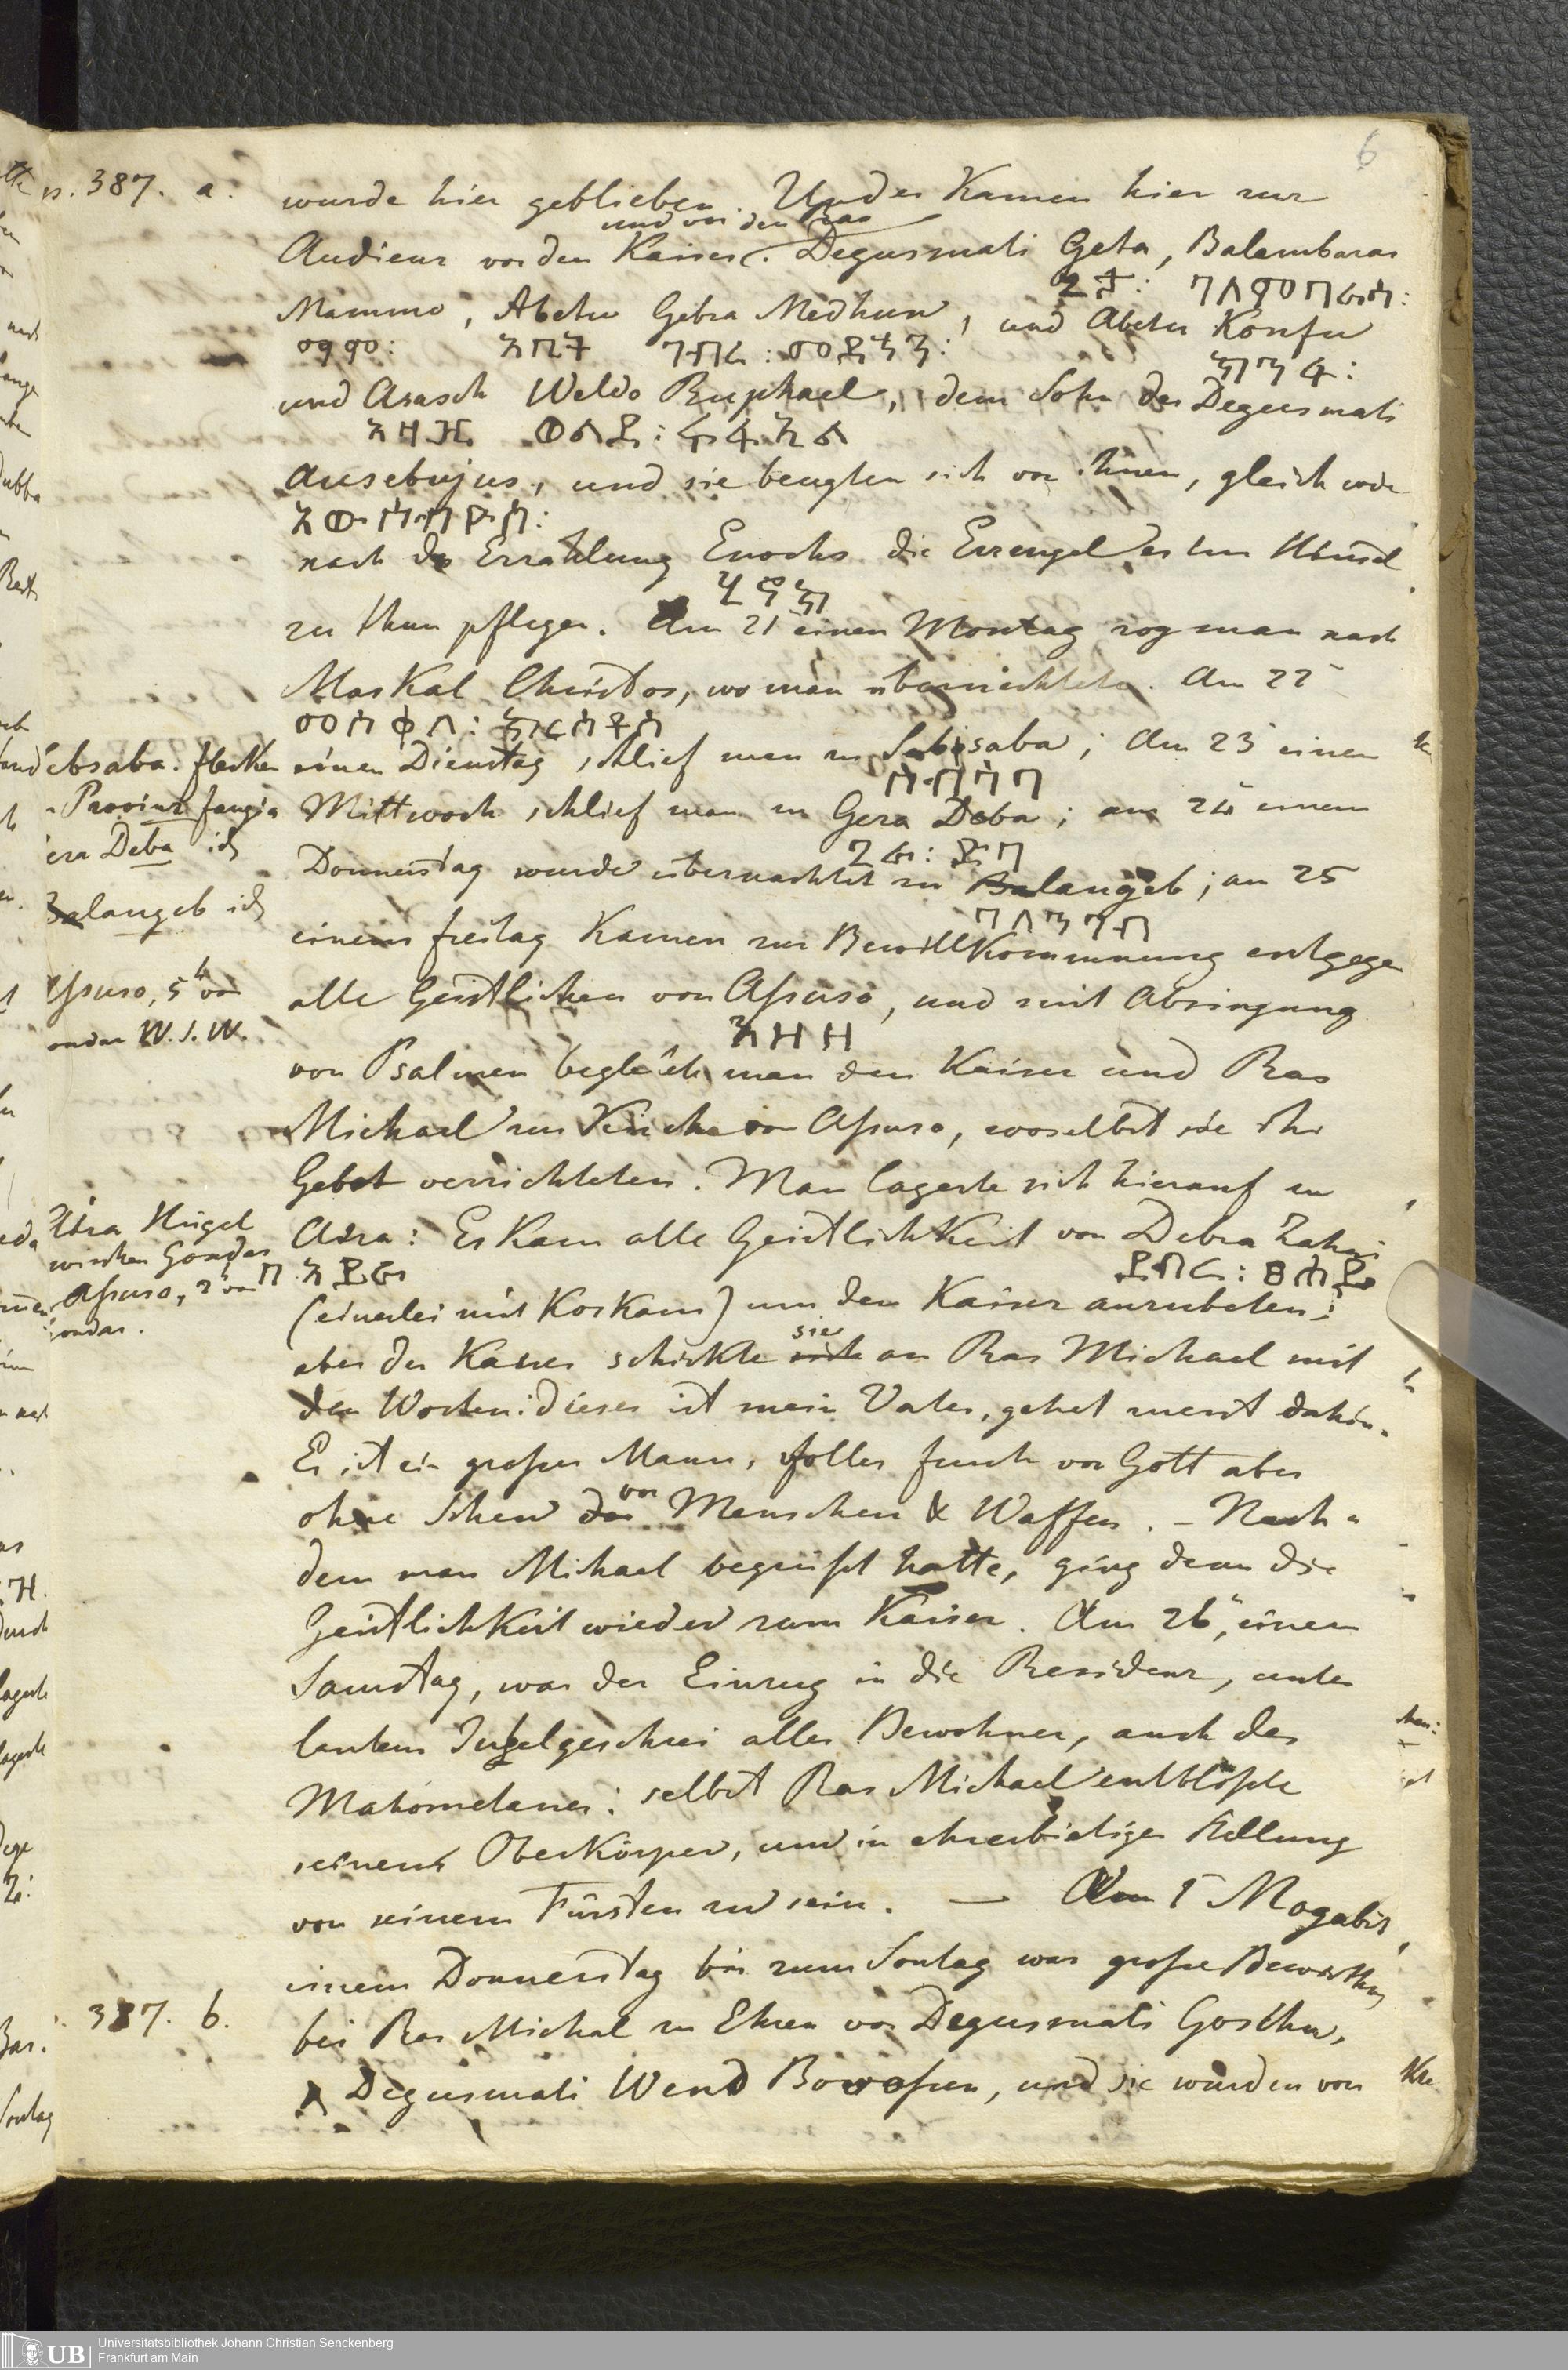 6
p. 387. a. wurde hier geblieben. Und es kamen hier zur
und vor den Ras
Audienz vor den Kaiser. Degusmati Geta, Balambaras
ጌታ: ባላምባራስ:
Mammo, Abetu Gebra Medhun, und Abetu Konfu
ማሞ: አቤቶ ገብረ: መድኅን: ክንፉ:
und Asasch Weldo Ruphael, dem Sohn des Degusmati
አዛዥ ወልደ: ሩፋኤል
Ausebujus, und sie beugten sich vor ihnen, gleich wie
አውሳብዮስ:
nach der Erzählung Enochs die Erzengel es im Himmel
ሄኖክ
zu thun pflegen. Am 21 einen Montag zog man nach
Maskal Christos, wo man übernachtete. Am 22
መስቀለ: ክርስቶስ
einen Dienstag schlief man zu Sabisaba; Am 23 einen
ሳብሳባ
Mittwoch schlief man zu Gera Deba; am 24 einem
ጌራ: ደባ
Donnerstag wurde übernachtet zu Balangeb; am 25
በላንገብ
einem freitag kamen zur Bewillkommnung entgegen
alle Geistlichen von Assaso, und mit Absingung
አዞዞ
von Psalmen begleitete man den Kaiser und Ras
Michael zur Kirche von Assaso, woselbst sie ihr
Gebet verrichteten. Man lagerte sich hierauf zu
Adra: Es kam alle Geistlichkeit von Debra Zahai
አደራ ደብረ: ፀሐይ
(einerlei mit Koskam) um den Kaiser anzubeten;
sie
aber der Kaiser schickte an Ras Michael mit
den Worten: dieses ist mein Vater, gehet zuerst dahin.
Er ist ein großer Mann, voller furcht vor Gott aber
ohne Scheu vor Menschen & Waffen. – Nach-
dem man Michael begrüßt hatte, ging dann die
Geistlichkeit wieder zum Kaiser. Am 26, einen
Samstag, war der Einzug in die Residenz, unter
lautem Jubelgeschrei aller Bewohner, auch der
Mahometaner: selbst Ras Michael entblößte
seinen Oberkörper, um in ehrerbietiger Stellung
vor seinem Fürsten zu sein. — Am 1 Magabit,
einem Donnerstag bis zum Sontag war große Bewirthung
387. b. bei Ras Michal zu Ehren von Degusmati Goschu,
& Degusmati Wend Bowossen, und sie wurden von
ebsaba. flecken
Provinz fangia
era Deba id
Balangeb id
Assaso, 5 h von
ondar W.S.W.
Adra Hügel
zwischen Gondar
Assaso, 2 h von
Gondar.
UB
Universitätsbibliothek Johann Christian Senckenberg
Frankfurt am Main